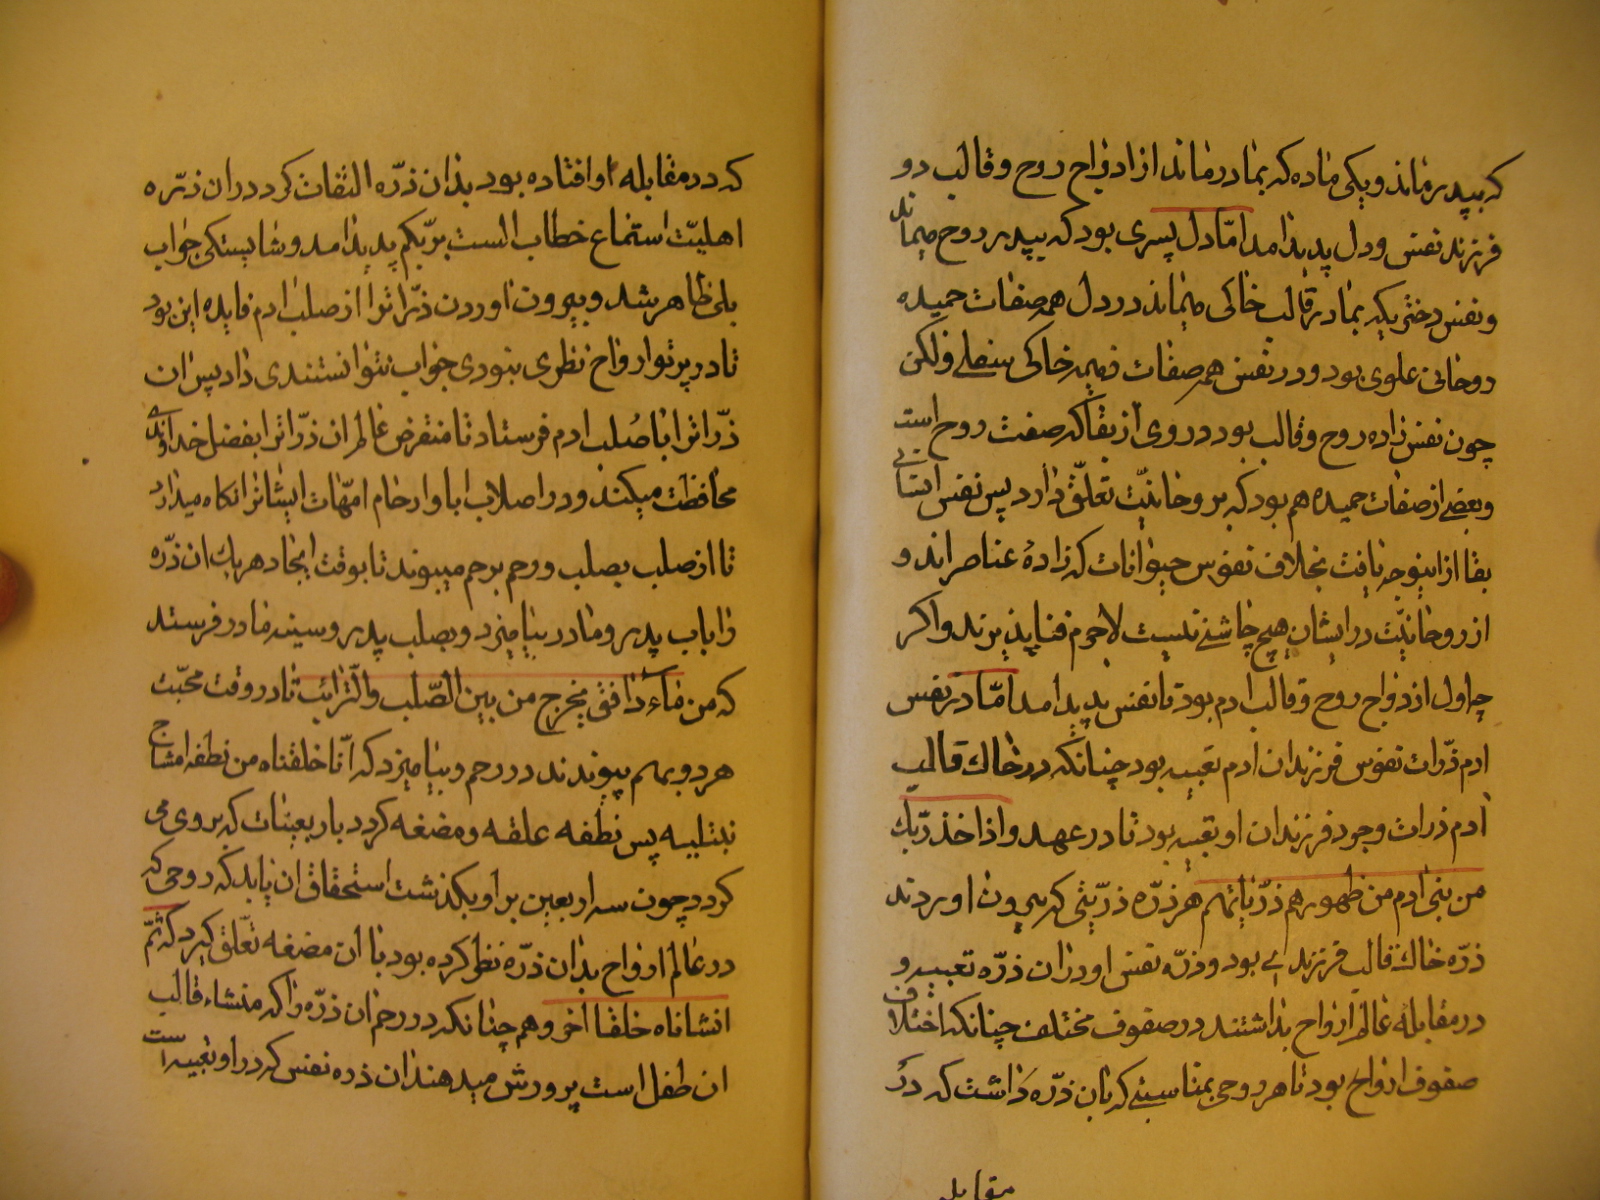 که بپدر ماند و یکی ماده که بمادر ماند از ازدواج روح و قالب دو
فرزند نفس و دل پدید امد اما دل پسری بود که بپدر روح میماند
و نفس دختری که بمادر قالب خاکی میماند در دل همه صفات حمیده
روحانی علوی بود و در نفس همه صفات ذمیمه خاکی سفلی ولکن
چون نفس زاده روح و قالب بود در وی از بقا که صفت روح است
و بعضی از صفات حمیده هم بود که بروحانیّت تعلّق دارد پس نفس انسانی
بقا از اینوجه یافت بخلاف نفوس حیوانات که زادهٔ عناصر اند و
از روحانیّت در ایشان هیچ چاشنی نیست لاجرم فنا پذیرند و اکر
چه اول ازدواج روح و قالب ادم بود تا نفس پدید امد امّا در نفس
ادم ذرّات نفوس فرزندان ادم تعبیه بود چنانکه در خاک قالب
ادم ذرات وجود فرزندان او تعبیه بود تا در عهد و اذا خذ ربّک
من بنی ادم من ظهورهم ذرّیاتهم هر ذرّه ذرّیتی که بیرون اوردند
ذرّه خاک قالب فرزندی بود و ذرّه نفس او دران ذرّه تعبیه و
در مقابلهٔ عالم ارواح بداشتند در صفوف مختلف چنانکه اختلاف
صفوف ارواح بود تا هر روحی بمناسبتی که بان ذرّه داشت که در
مقابله
که در مقابله او افتاده بود بدان ذرّه التفات کرد دران ذرّه
اهلیّت استماع خطاب الست بربّکم پدید امد و شایستکی جواب
بلی ظاهر شد و بیرون اوردن ذرّاترا از صلب ادم فایده این بود
تا در پرتو ارواح نظری بنبودی جواب نتوانستندی داد پس ان
ذرّاترا با صُلب ادم فرستاد تا منقرض عالم ان ذرّاترا بفضل خداوندی
محافظت میکند و در اصلاب ابا و ارحام امّهات ایشانرا نکاه میدارد
تا از صلب بصلب و رحم برحم میپیوند تا بوقت ایجاد هر یک ان ذرّه
را باب پدر و مادر بیامیزد و بصلب پدر و سینه مادر فرستد
که من ماء دافق یخرج من بین الصّلب والتّرائب تا در وقت محبّت
هر دو بهم پیوندند در رحم و بیامیزد که انّا خلقناه من نطفه امشاج
نبتلیه پس نطفه علقه و مضغه کردد باربعینات که بروی می
کردد چون سه اربعین براو بکذشت استحقاق ان یابد که روحی که
در عالم ارواح بدان ذرّه نظر کرده بود با ان مضغه تعلّق کیرد که ثمّ
انشاناه خلقا اخر و هم چنانکه در رحم ان ذرّه را که منشاء قالب
ان طفل است پرورش میدهند ان ذره نفس که در او تعبیه است